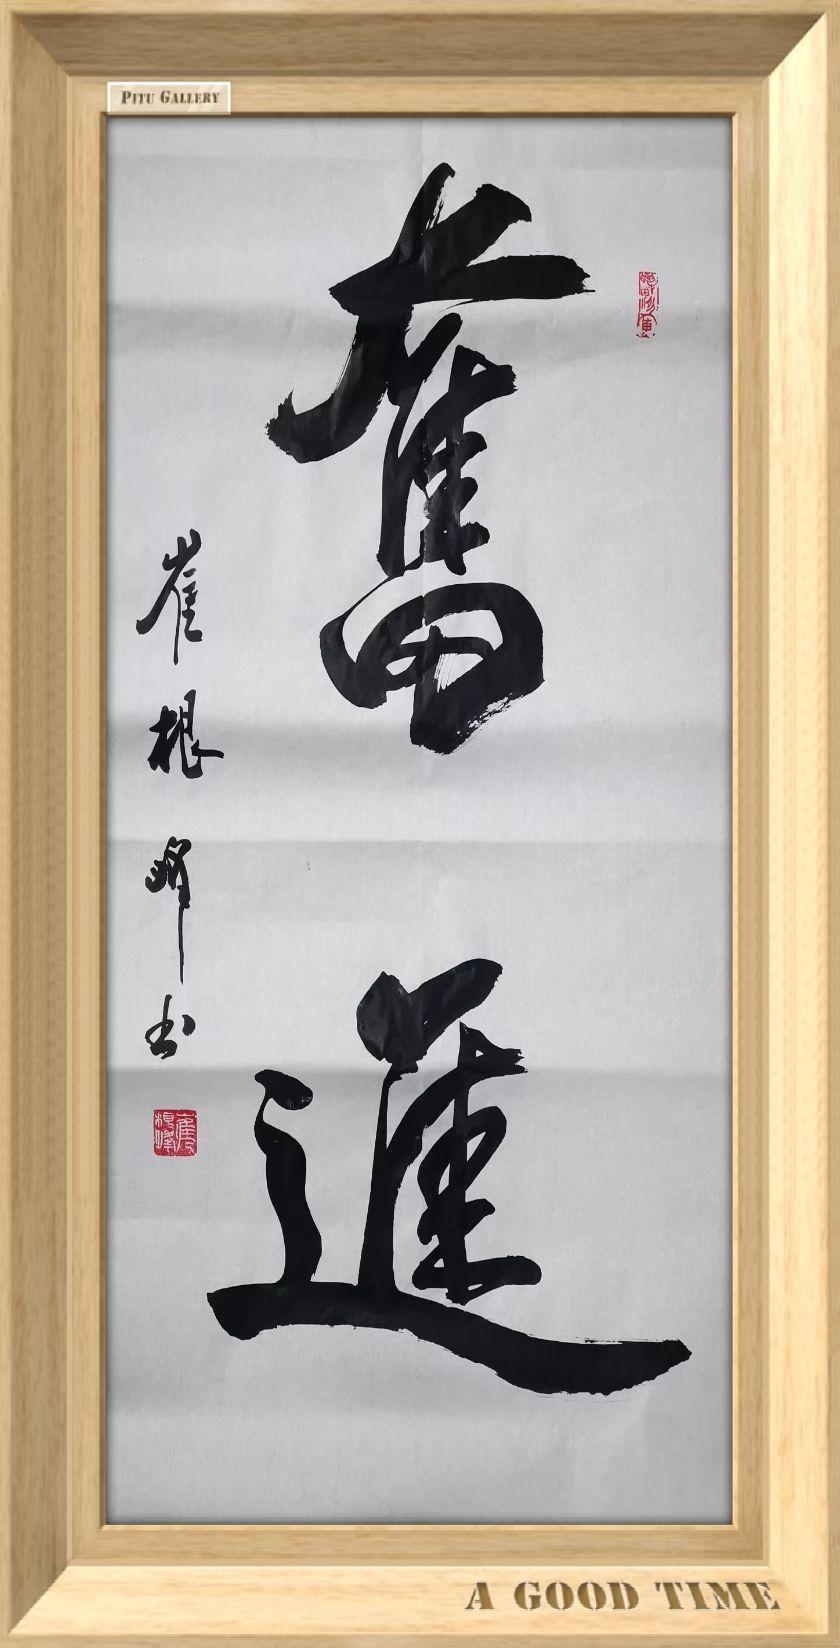 PITU GALLERY
奮進
崔根峰书
A GOOD TIME